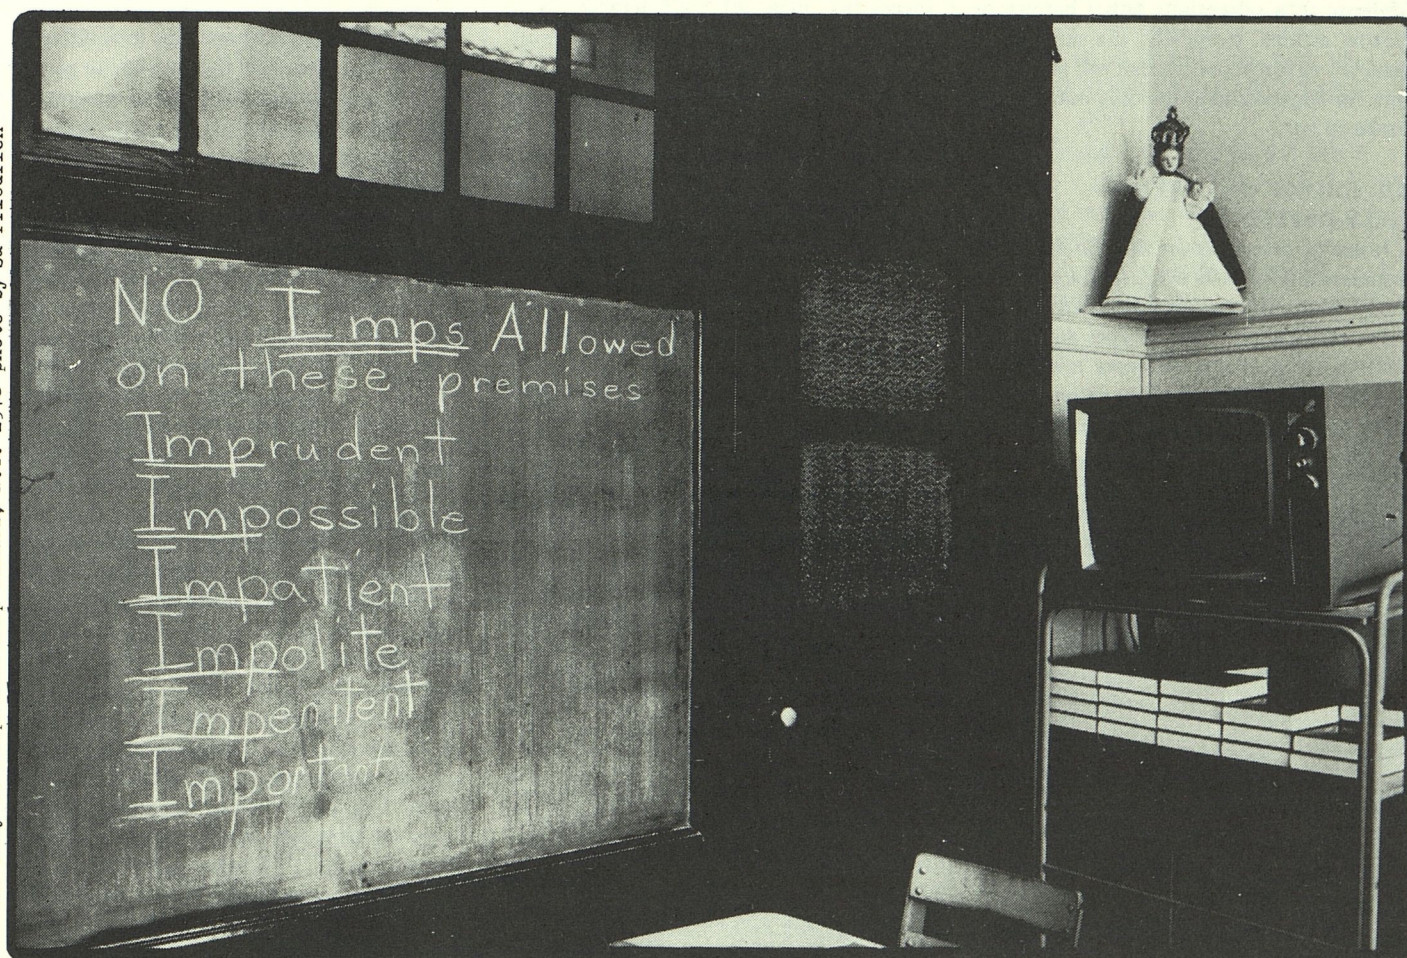 NO Imps Allowed
on these premises
Imprudent
Impossible
Impatient
Impolite
Impenitent
Important
photo by Ed Friedrich